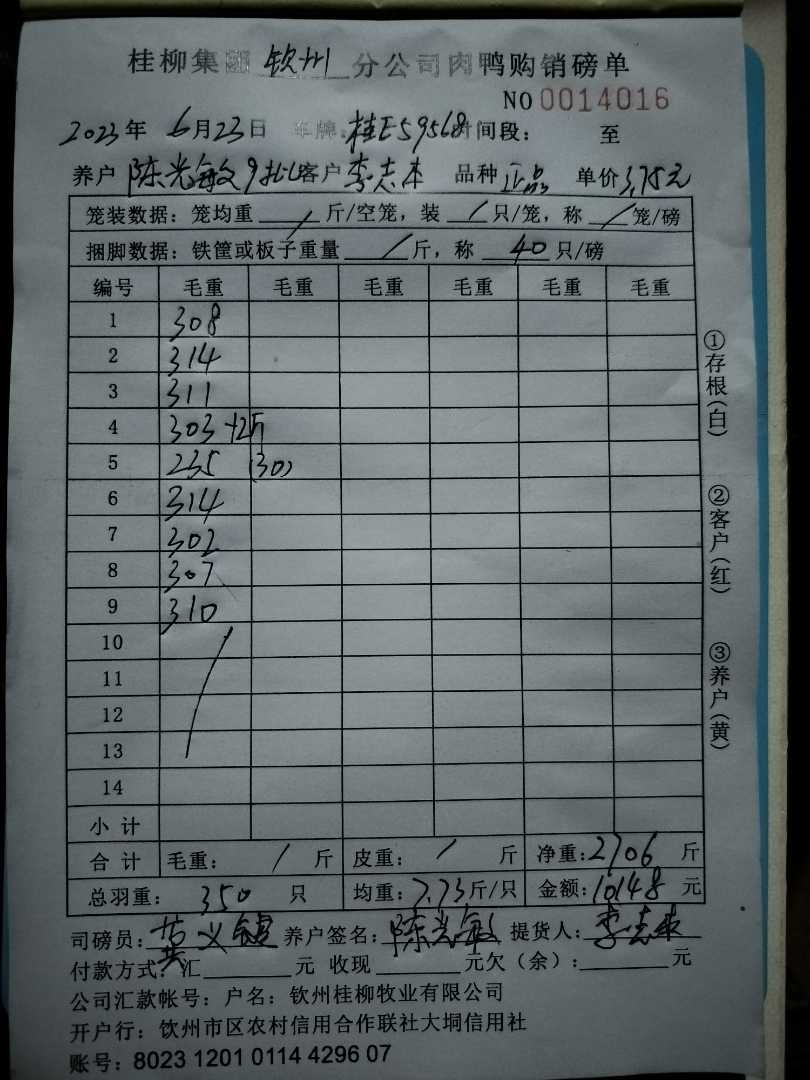 桂柳集团 钦州 分公司肉鸭购销磅单
NO 0014016
2023年 6月23日 车牌: 桂E59568 时间段: 至
养户 陈光敏9批 客户 李志本 品种 正品 单价 3.75元
笼装数据: 笼均重 / 斤/空笼, 装 / 只/笼, 称 / 笼/磅
捆脚数据: 铁筐或板子重量 / 斤, 称 40 只/磅
编号 毛重 毛重 毛重 毛重 毛重 毛重
1 308
2 314
3 311
4 303 +2斤
5 235 (30)
6 314
7 302
8 307
9 310
10
11
12
13
14
小计
合计 毛重: / 斤 皮重: / 斤 净重: 2706 斤
总羽重: 350 只 均重: 7.73 斤/只 金额: 10148 元
司磅员: 黄义键 养户签名: 陈光敏 提货人: 李志本
付款方式: 汇 元 收现 元欠(余): 元
公司汇款帐号: 户名: 钦州桂柳牧业有限公司
开户行: 钦州市区农村信用合作联社大垌信用社
账号: 8023 1201 0114 4296 07
①存根(白)
②客户(红)
③养户(黄)